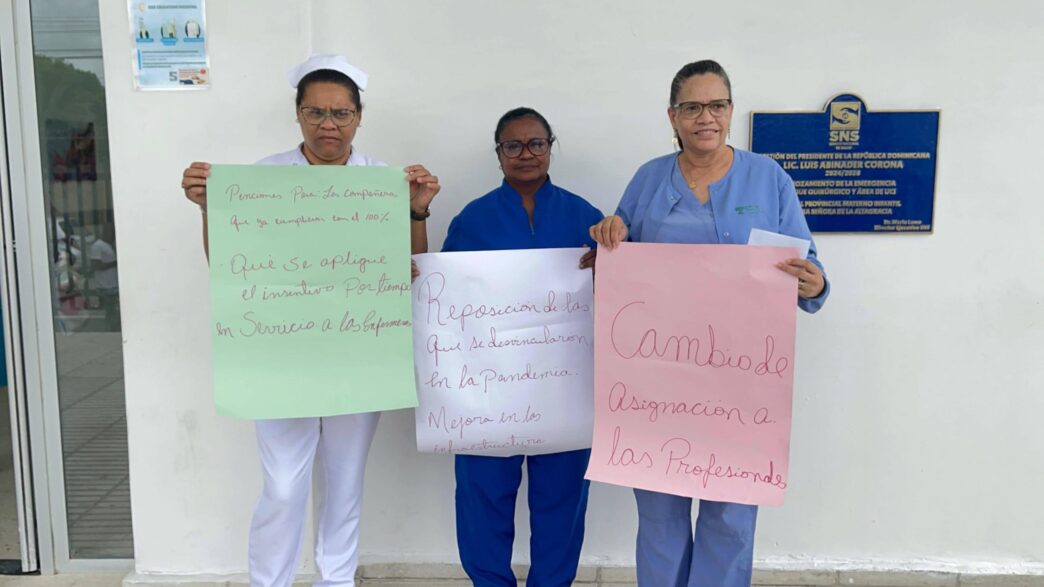 Penciones Para: Las Compañera
Que ya cumplieron con el 100%
Qué Se aptigue
el insentivo Por tiempo
en Servicio a las Enfermeras
Reposición de las
Que se desvincularon
en la Pandemia.
Mejora en las
infraestructura
Cambio de
Asignación a
las Profesionales
SNS
GESTIÓN DEL PRESIDENTE DE LA REPÚBLICA DOMINICANA
LIC. LUIS ABINADER CORONA
2024/2028
OZAMIENTO DE LA EMERGENCIA
QUE QUIRÚRGICO Y ÁREA DE UCI
L PROVINCIAL MATERNO INFANTIL
RA SEÑORA DE LA ALTAGRACIA
Dr. Mario Lama